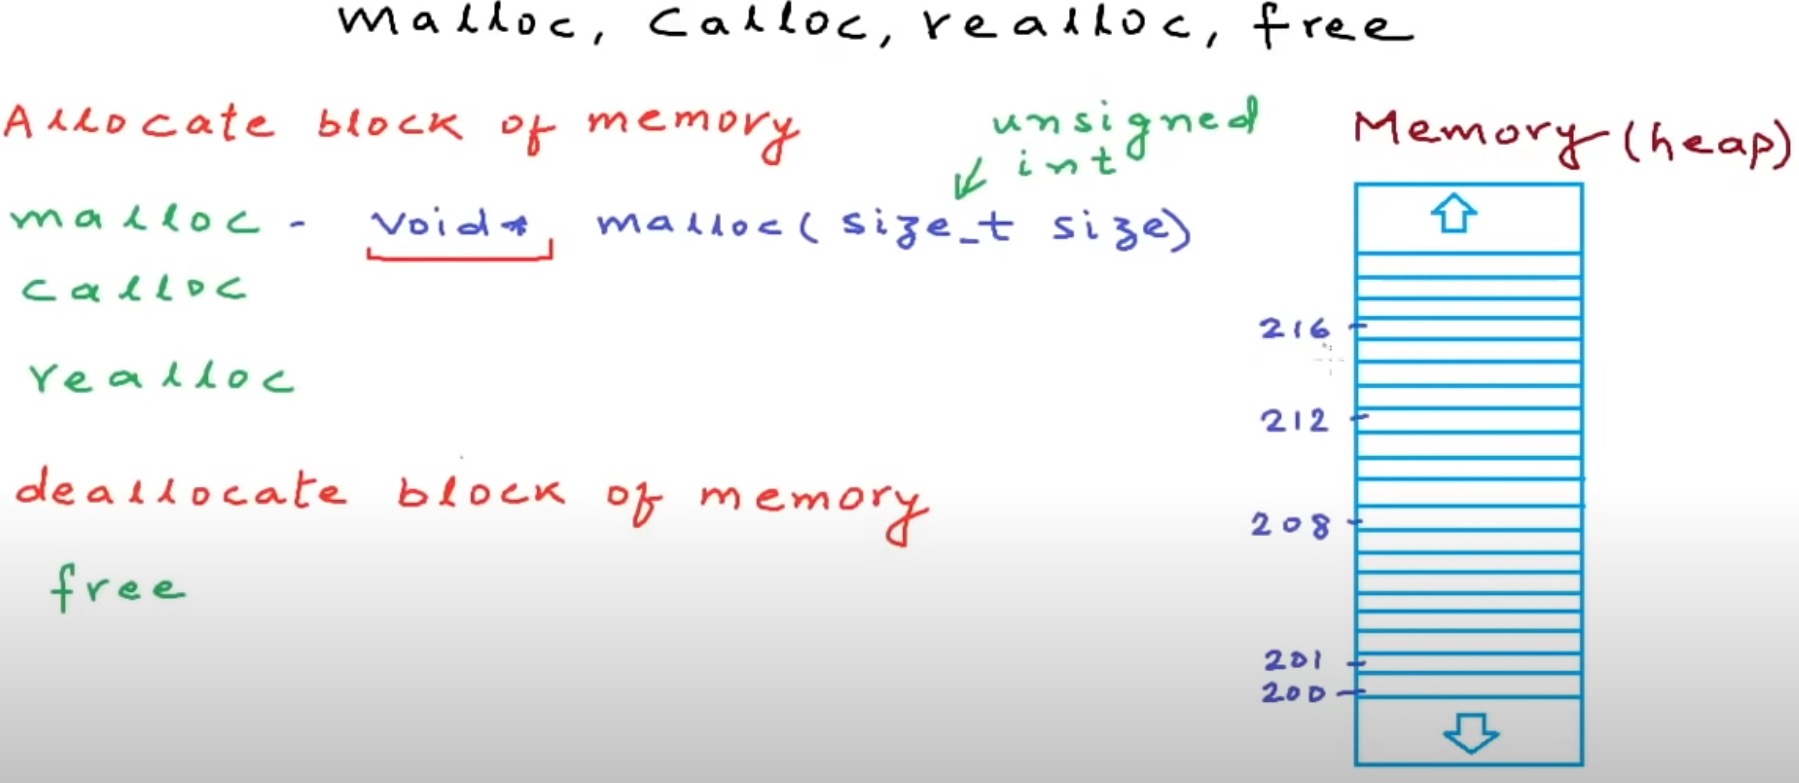 malloc, calloc, realloc, free
Allocate block of memory
unsigned
int
malloc - void* malloc(size_t size)
calloc
realloc
deallocate block of memory
free
Memory (heap)
216
212
208
201
200